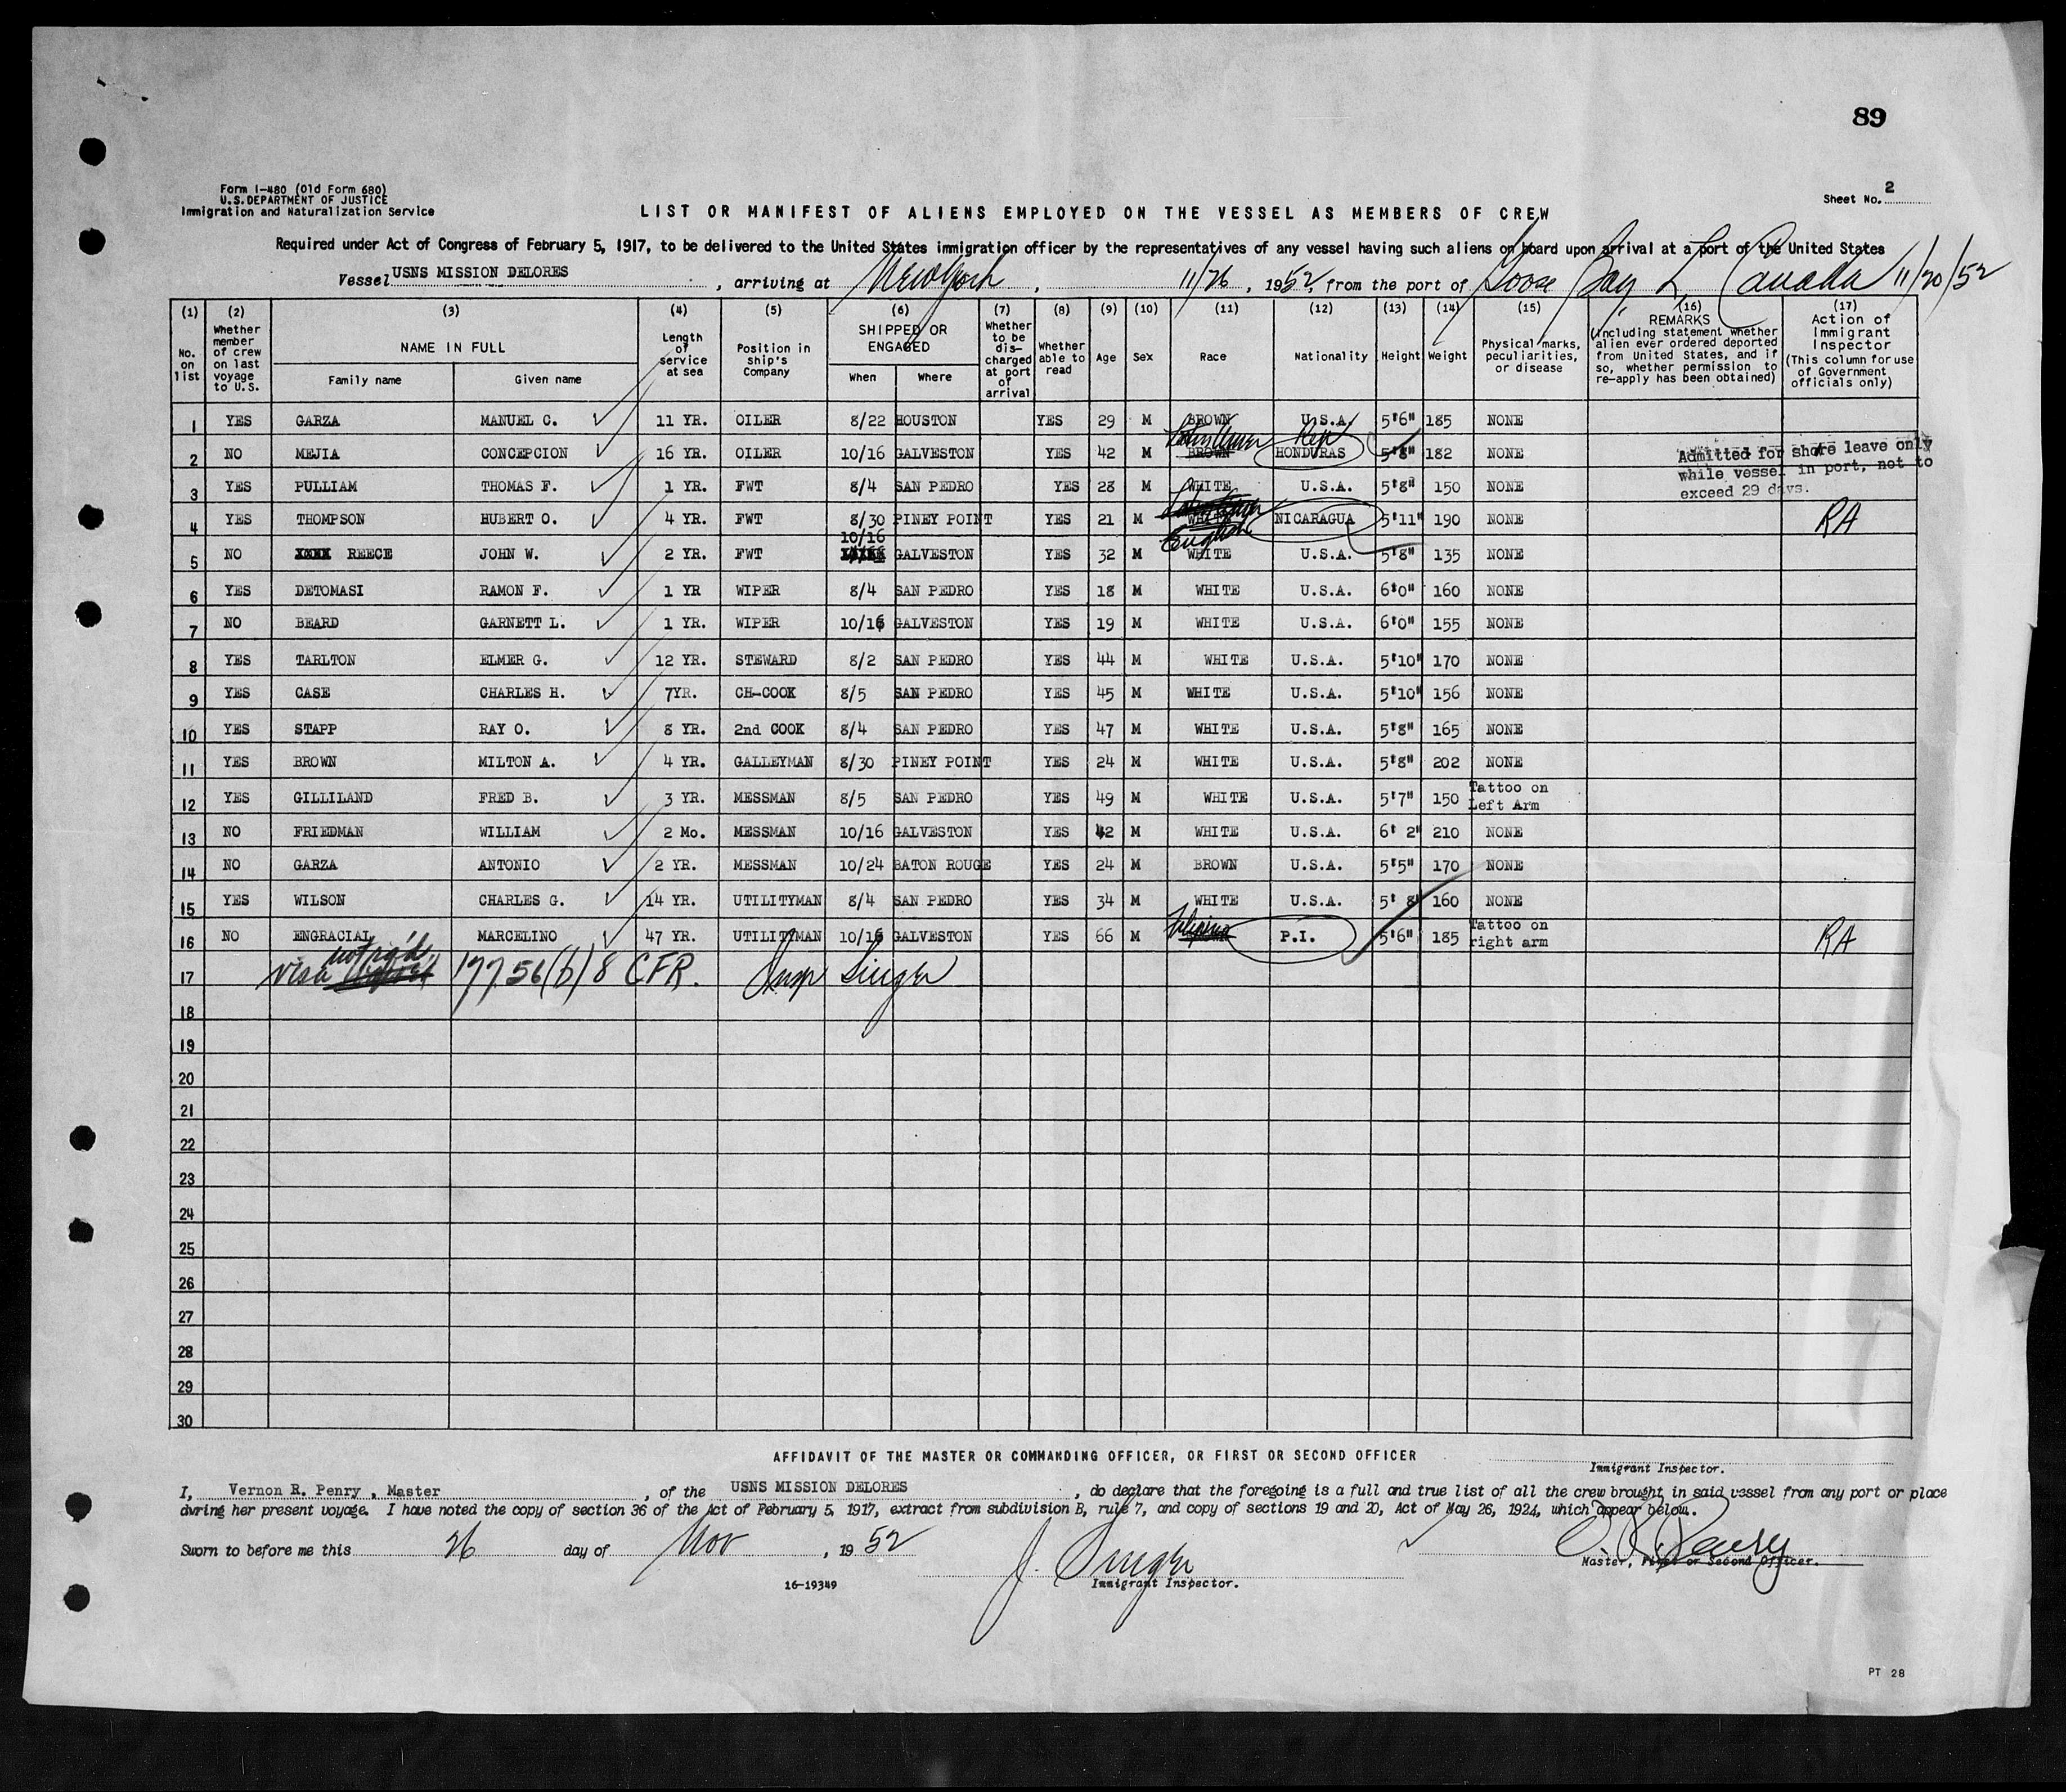 89
Form I-480 (Old Form 680)
U.S. DEPARTMENT OF JUSTICE
Immigration and Naturalization Service
Sheet No. 2
LIST OR MANIFEST OF ALIENS EMPLOYED ON THE VESSEL AS MEMBERS OF CREW
Required under Act of Congress of February 5, 1917, to be delivered to the United States immigration officer by the representatives of any vessel having such aliens on board upon arrival at a port of the United States
Vessel USNS MISSION DELORES, arriving at New York, 11/26, 1952, from the port of Goose Bay L. Canada 11/20/52
(1) No. on list (2) Whether member of crew on last voyage to U.S. (3) NAME IN FULL Family name Given name (4) Length of service at sea (5) Position in ship's Company (6) SHIPPED OR ENGAGED When Where (7) Whether to be dis-charged at port of arrival (8) Whether able to read (9) Age (10) Sex (11) Race (12) Nationality (13) Height (14) Weight (15) Physical marks, peculiarities, or disease (16) REMARKS (Including statement whether alien ever ordered deported from United States, and if so, whether permission to re-apply has been obtained) (17) Action of Immigrant Inspector (This column for use of Government officials only)
1 YES GARZA MANUEL C. 11 YR. OILER 8/22 HOUSTON YES 29 M BROWN U.S.A. 5'6" 185 NONE
Latin Amer Rep
2 NO MEJIA CONCEPCION 16 YR. OILER 10/16 GALVESTON YES 42 M BROWN HONDURAS 5'8" 182 NONE Admitted for shore leave only
while vessel in port, not to
exceed 29 days.
3 YES PULLIAM THOMAS F. 1 YR. FWT 8/4 SAN PEDRO YES 28 M WHITE U.S.A. 5'8" 150 NONE
4 YES THOMPSON HUBERT O. 4 YR. FWT 8/30 PINEY POINT YES 21 M WHITE English NICARAGUA 5'11" 190 NONE RA
5 NO XXXX REECE JOHN W. 2 YR. FWT 10/16 GALVESTON YES 32 M WHITE U.S.A. 5'8" 135 NONE
6 YES DETOMASI RAMON F. 1 YR WIPER 8/4 SAN PEDRO YES 18 M WHITE U.S.A. 6'0" 160 NONE
7 NO BEARD GARNETT L. 1 YR. WIPER 10/16 GALVESTON YES 19 M WHITE U.S.A. 6'0" 155 NONE
8 YES TARLTON ELMER G. 12 YR. STEWARD 8/2 SAN PEDRO YES 44 M WHITE U.S.A. 5'10" 170 NONE
9 YES CASE CHARLES H. 7YR. CH-COOK 8/5 SAN PEDRO YES 45 M WHITE U.S.A. 5'10" 156 NONE
10 YES STAPP RAY O. 8 YR. 2nd COOK 8/4 SAN PEDRO YES 47 M WHITE U.S.A. 5'8" 165 NONE
11 YES BROWN MILTON A. 4 YR. GALLEYMAN 8/30 PINEY POINT YES 24 M WHITE U.S.A. 5'8" 202 NONE
12 YES GILLILAND FRED B. 3 YR. MESSMAN 8/5 SAN PEDRO YES 49 M WHITE U.S.A. 5'7" 150 Tattoo on Left Arm
13 NO FRIEDMAN WILLIAM 2 Mo. MESSMAN 10/16 GALVESTON YES 42 M WHITE U.S.A. 6' 2" 210 NONE
14 NO GARZA ANTONIO 2 YR. MESSMAN 10/24 BATON ROUGE YES 24 M BROWN U.S.A. 5'5" 170 NONE
15 YES WILSON CHARLES G. 14 YR. UTILITYMAN 8/4 SAN PEDRO YES 34 M WHITE U.S.A. 5' 8" 160 NONE
16 NO ENGRACIAL MARCELINO 47 YR. UTILITYMAN 10/16 GALVESTON YES 66 M Filipino P.I. 5'6" 185 Tattoo on right arm RA
17 Visa not rq'd 177.56(b) 8 CFR. Insp Singer
18
19
20
21
22
23
24
25
26
27
28
29
30
AFFIDAVIT OF THE MASTER OR COMMANDING OFFICER, OR FIRST OR SECOND OFFICER
Immigrant Inspector.
I, Vernon R. Penry, Master, of the USNS MISSION DELORES, do declare that the foregoing is a full and true list of all the crew brought in said vessel from any port or place
during her present voyage. I have noted the copy of section 36 of the Act of February 5, 1917, extract from subdivision B, rule 7, and copy of sections 19 and 20, Act of May 26, 1924, which appear below.
Sworn to before me this 26 day of Nov, 1952
J. Singer
Immigrant Inspector.
Penry
Master, First or Second Officer.
16-19349
PT 28